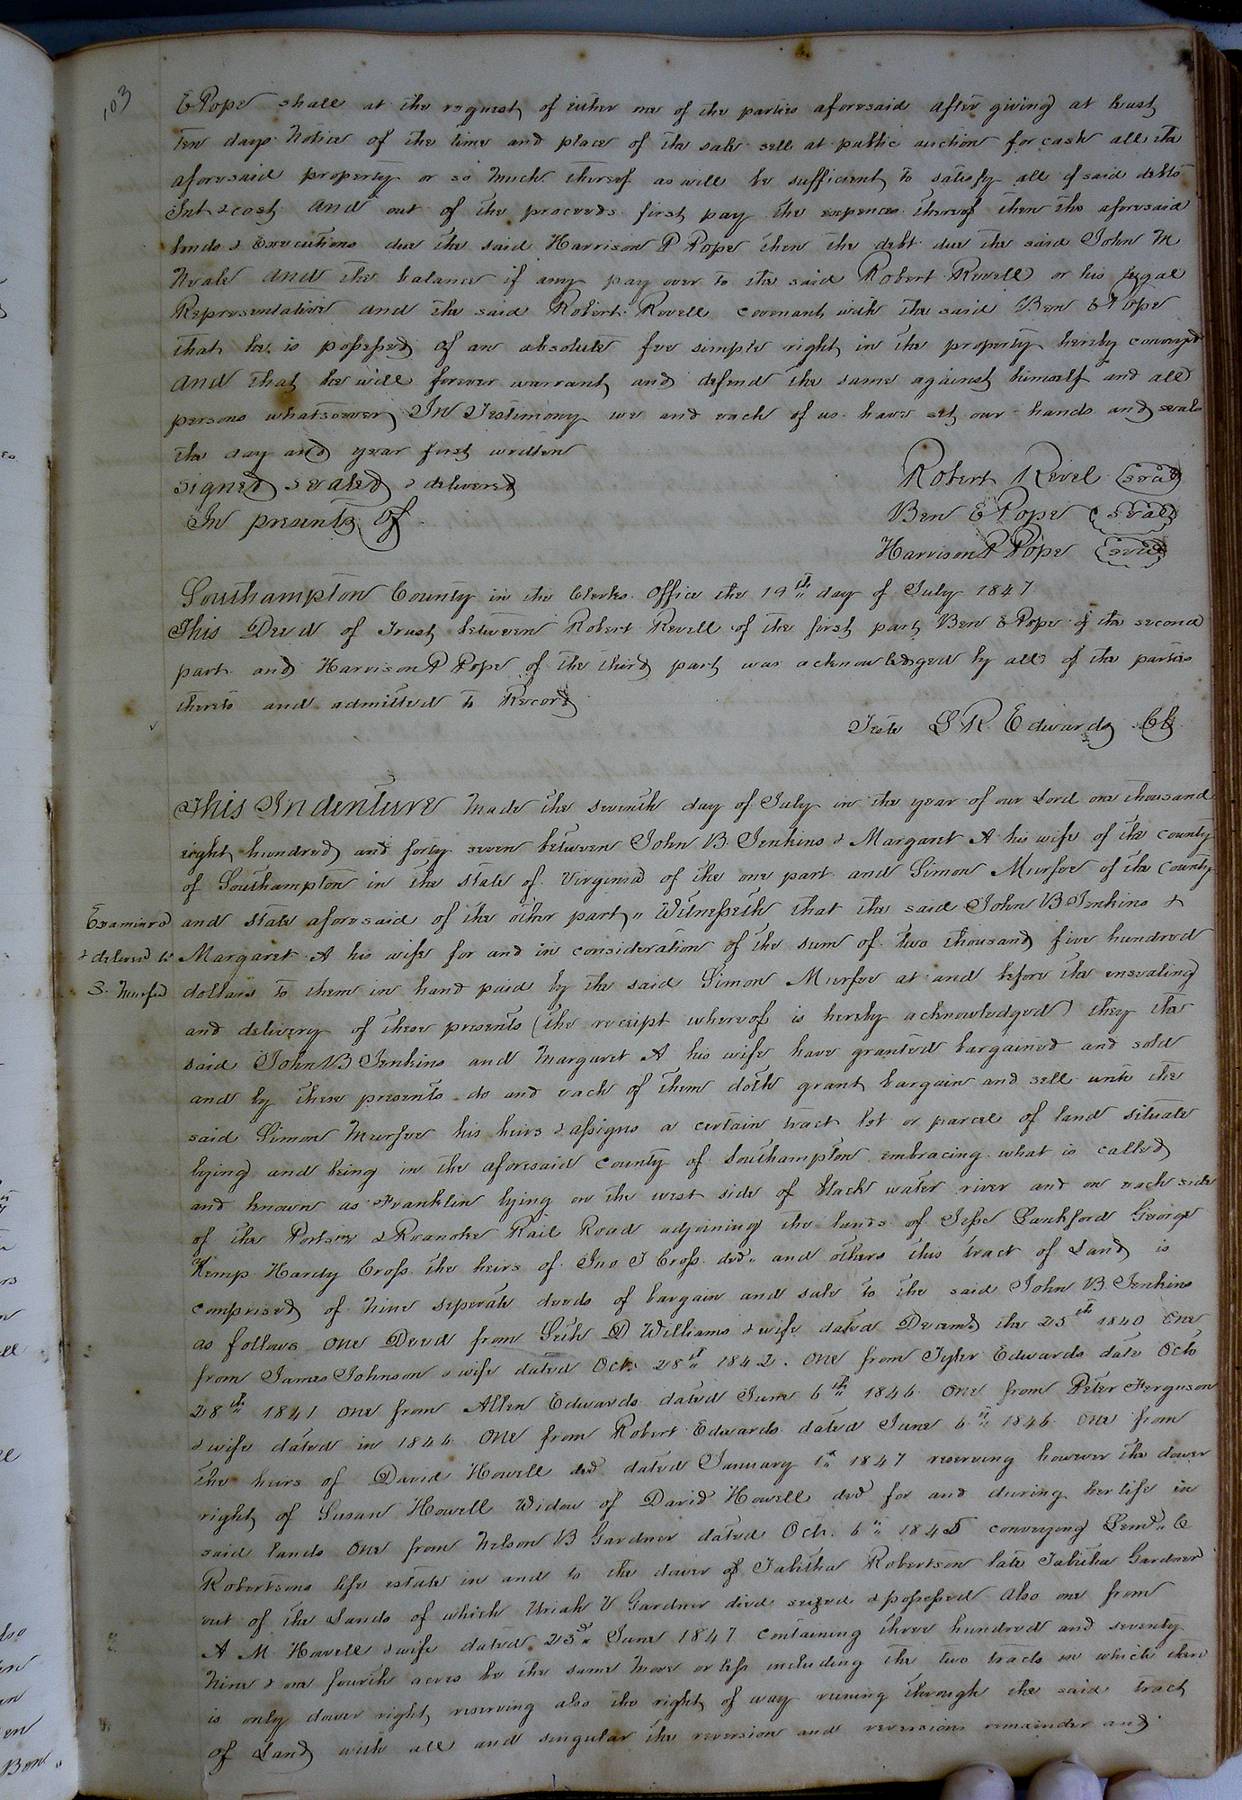 103
E Pope shall at the request of either one of the parties aforesaid after giving at least
ten days Notice of the time and place of the sale sell at public auction for cash all the
aforesaid property or so much thereof as will be sufficient to satisfy all of said debts
Int & cost and out of the proceeds first pay the expences thereof then the aforesaid
& Executions due the said Harrison P Pope then the debt due the said John M
Neale and the balance if any pay over to the said Robert Revell or his legal
Representative and the said Robert Revell covenant with the said Ben E Pope
that he is possessed of an absolute fee simple right in the property hereby conveyed
and that he will forever warrant and defend the same against himself and all
persons whatsoever In Testimony we and each of us have set our hands and seals
the day and year first written
signed sealed & delivered
In presents of
Robert Revel (seal)
Ben E Pope (seal)
Harrison P Pope (seal)
Southampton County in the Clerks Office the 19th day of July 1847
This Deed of Trust between Robert Revell of the first part Ben E Pope of the second
part and Harrison P Pope of the third part was acknowledged by all of the parties
thereto and admitted to Record
Teste L R Edwards Clk
This Indenture Made the seventh day of July in the year of our Lord one thousand
eight hundred and forty seven between John B Jenkins & Margaret A his wife of the county
of Southampton in the state of Virginia of the one part and Simon Murfee of the County
and state aforesaid of the other part, Witnesseth that the said John B Jenkins &
Margaret A his wife for and in consideration of the sum of two thousand five hundred
dollars to them in hand paid by the said Simon Murfee at and before the ensealing
and delivery of these presents (the receipt whereof is hereby acknowledged) they the
said John B Jenkins and Margaret A his wife have granted bargained and sold
and by these presents do and each of them doth grant bargain and sell unto the
said Simon Murfee his heirs & assigns a certain tract lot or parcel of land situate
lying and being in the aforesaid county of Southampton embracing what is called
and known as Franklin lying on the west side of black water river and on each side
of the & Roanoke Rail Road adjoining the lands of Jesse Lankford George
Kemp Hardy Cross the heirs of Jno J Cross decd. and others this tract of Land is
comprised of Nine seperate deeds of bargain and sale to the said John B Jenkins
as follows One Deed from Seth D Williams & wife dated the 25th 1840 One
from James Johnson & wife dated Oct. 28th 1842. one from Tyler Edwards date Octo
28th 1841 one from Allen Edwards dated June 6th 1846 one from Peter Ferguson
& wife dated in 1846 one from Robert Edwards dated June 6th 1846 one from
the heirs of David Howell decd dated January 1st 1847 reserving however the dower
right of Susan Howell Widow of David Howell decd for and during her life in
said lands One from Nelson B Gardner dated Oct. 6th 1845 conveying C
Robertsons life estate in and to the dower of Tabitha Robertson late Tabitha Gardner
out of the Lands of which Uriah V Gardner died seized & possessed also one from
A M Howell & wife dated 23d June 1847 containing three hundred and seventy
Nine & one fourth acres be the same More or less including the two tracts in which there
is only dower right reserving also the right of way runing through the said tract
of Land with all and singular the reversion and reversions remainder and
Examined
& delivered to
S. Murfee